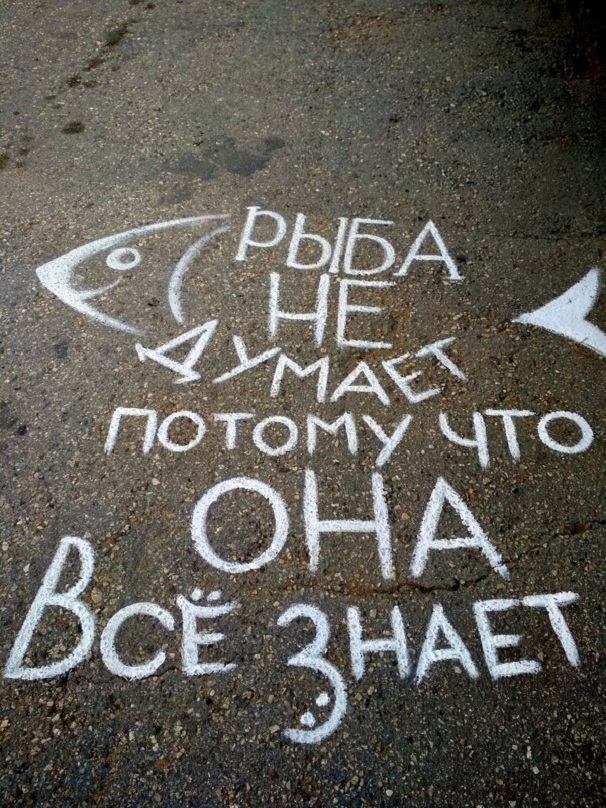 РЫБА
НЕ
ДУМАЕТ
ПОТОМУ ЧТО
ОНА
ВСЁ ЗНАЕТ